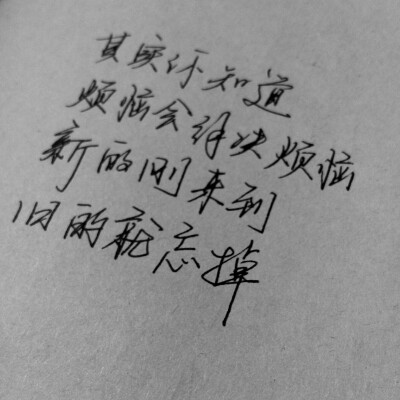 其实你知道
烦恼会解决烦恼
新的刚来到
旧的就忘掉